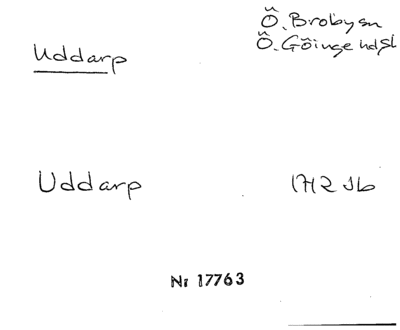 Ö. Broby sn
Uddarp
Ö. Göinge hdsb
Uddarp
1712 Jb
Nr 17763